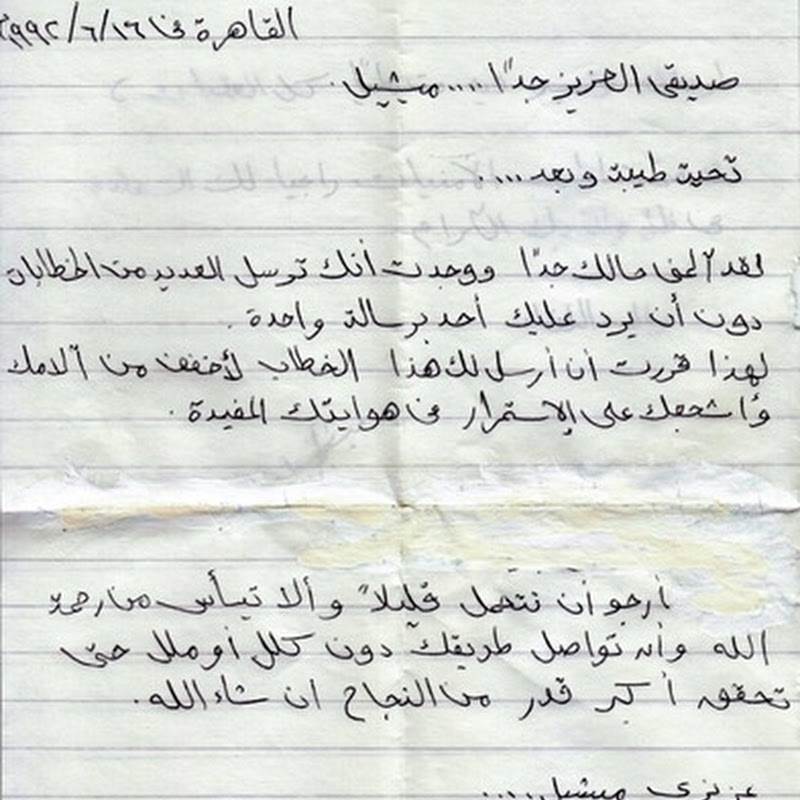 القاهرة في ١٩٩٢/٦/١٦
صديقى العزيز جدًا .... ميشيل .
تحية طيبة وبعد ....
لقد آلمنى حالك جدًا ووجدت أنك ترسل العديد من الخطابات
دون أن يرد عليك أحد برسالة واحدة .
لهذا قررت أن أرسل لك هذا الخطاب لأخفف من آلامك
وأشجعك على الإستمرار فى هوايتك المفيدة .
أرجو أن تتحمل قليلاً وألا تيأس من رحمة
الله وأن تواصل طريقك دون كلل أو ملل حتى
تحقق أكبر قدر من النجاح ان شاء الله .
عزيزى ميشيل ....